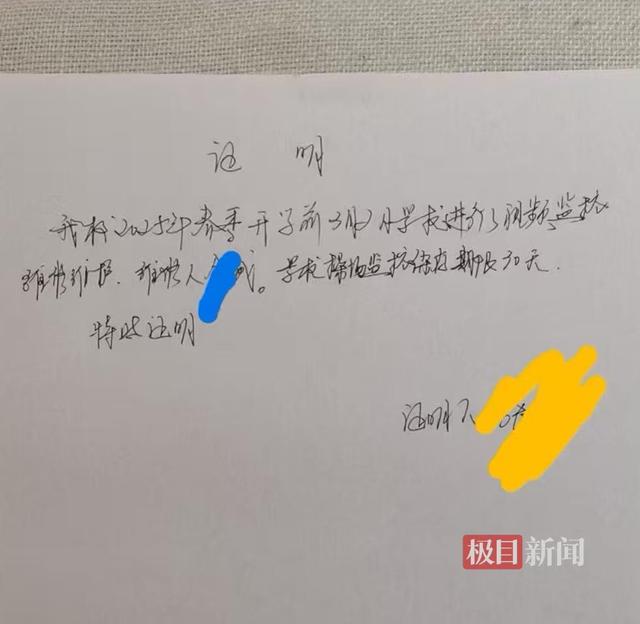 证 明
我校2025年春季开学前3月2日学校进行了视频监控
维修维护，维修人 成。学校操场监控保存期限30天.
特此证明
证明人
极目新闻